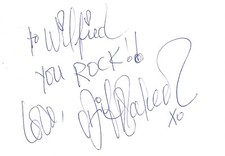 to Wilfried
YOU ROCK!!
Love,
xo